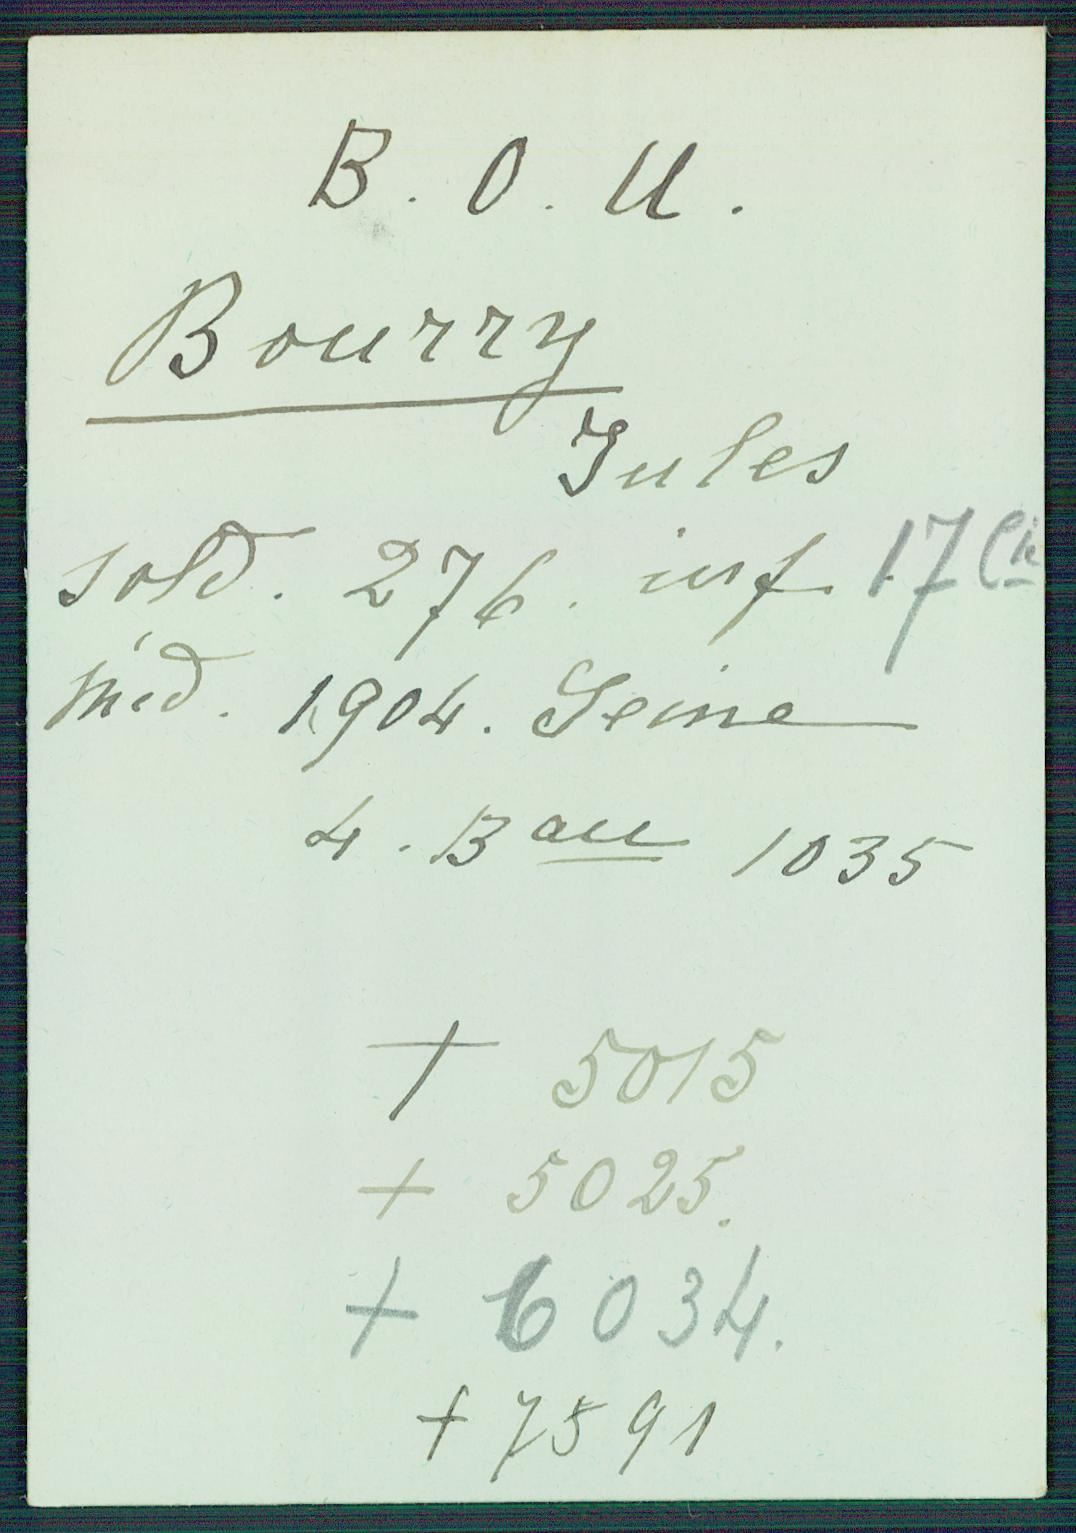 B. O. U.
Bourry
Jules
sold. 276. inf 17 Cie
Méd. 1904. Seine
4. Bau 1035
+ 5015
+ 5025.
+ 6034.
+ 7591